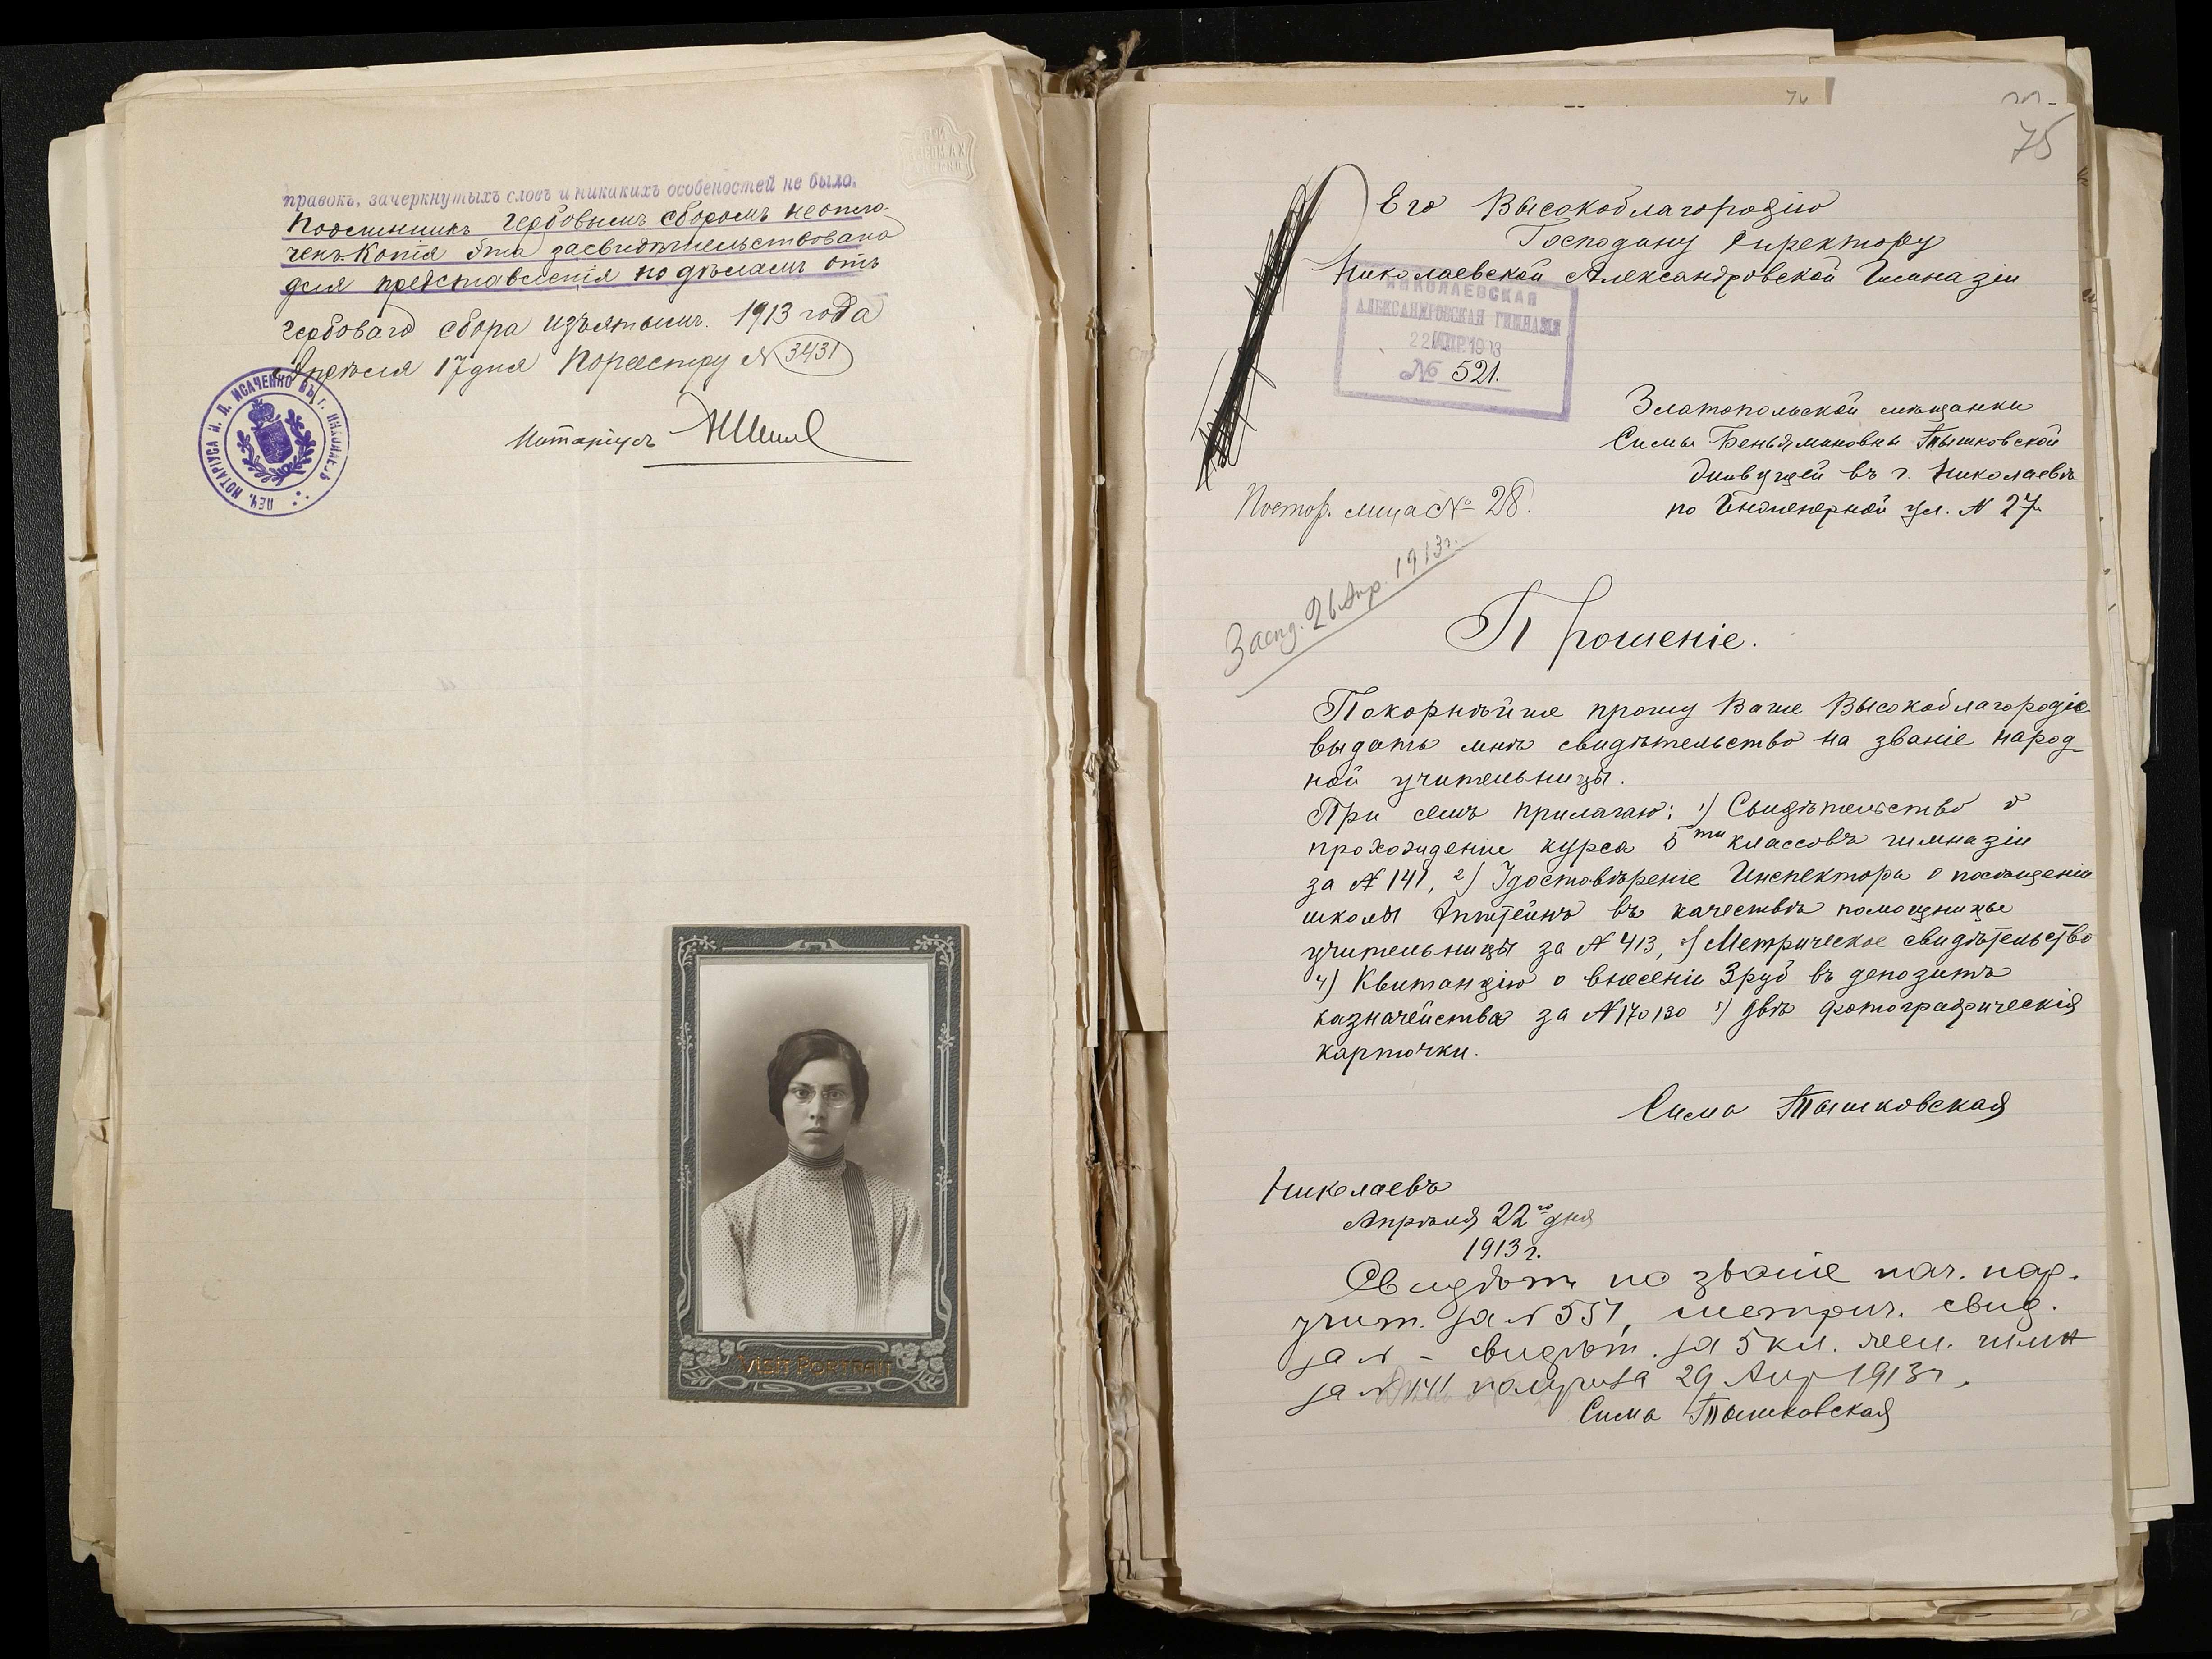 правокъ, зачеркнутыхъ словъ и никакихъ особеностей не было.
Подлинникъ гербовымъ сборомъ неопла-
ченъ. Копія эта засвидѣтельствована
для представленія по дѣламъ отъ
гербоваго сбора изъятымъ. 1913 года
Апрѣля 17 дня По реестру № 3431
Нотаріусъ
ПЕЧ. НОТАРІУСА И. П. ИСАЧЕНКО ВЪ Г. НИКОЛАЕВѢ
VISIT PORTRAIT
76
75
Его Высокоблагородію
Господину Директору
Николаевской Александровской Гимназіи
НИКОЛАЕВСКАЯ
АЛЕКСАНДРОВСКАЯ ГИМНАЗІЯ
22 АПР. 1913
№ 521.
Златопольской мѣщанки
Симы Беньяминовны Тышковской
живущей въ г. Николаевѣ
по Инженерной ул. № 27
Постор. лица № 28.
Засѣд. 26 Апр. 1913 г.
Прошеніе.
Покорнѣйше прошу Ваше Высокоблагородіе
выдать мнѣ свидѣтельство на званіе народ-
ной учительницы.
При семъ прилагаю: 1) Свидѣтельство о
прохождение курса 5ти классовъ гимназіи
за № 141, 2) Удостовѣреніе Инспектора о посѣщеніи
школы въ качествѣ помощницы
учительницы за № 413, 3) Метрическое свидѣтельство
4) Квитанцію о внесеніи 3 руб въ депозитъ
казначейства за № 170130 5) двѣ фотографическія
карточки.
Сима Тышковская
Николаевъ
Апрѣля 22го дня
1913 г.
Свидѣт. на званіе нач. нар.
учит. за № 551, метрич. свид.
за № - свидѣт. за 5 кл. жен. гимн
за № 141 получила 29 Апр 1913 г.
Сима Тышковская